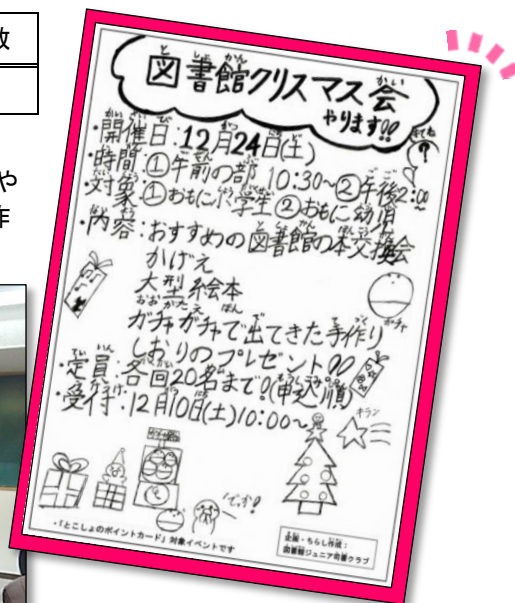 数
や
作
図書館クリスマス会
としょかん かい
やります!!
・開催日:12月24日(土)
・時間:①午前の部 10:30~②午後2:00~
・対象:①おもに小学生②おもに幼児
・内容:おすすめの図書館の本交換会
かげえ
大型絵本
おおがたえほん
ガチャガチャで出てきた手作り
しおりのプレゼント!!
・定員:各回20名まで!(申込順)
・受付:12月10日(土)10:00~
きてね
?
ガチャ
キラン
・「とこしょのポイントカード」対象イベントです
企画・ちらし作成:
図書館ジュニア司書クラブ